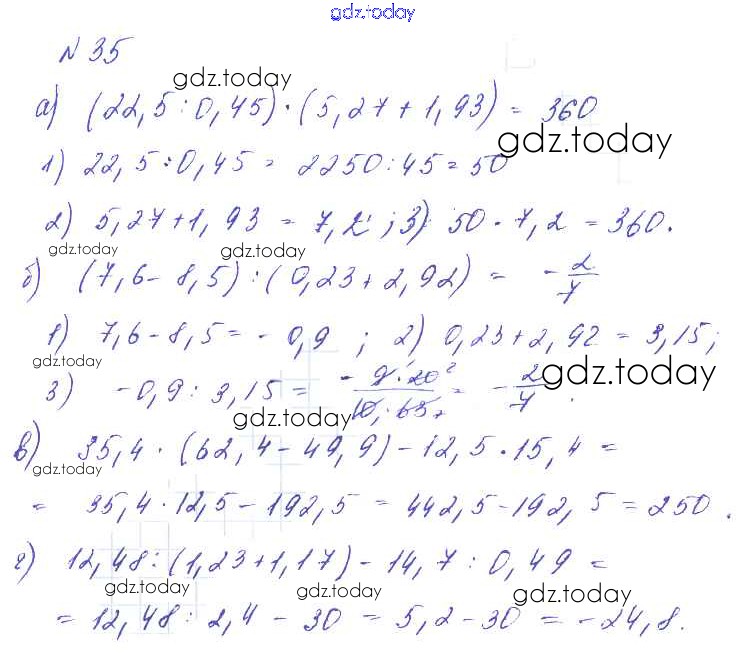 gdz.today
№ 35
gdz.today
а) (22,5 : 0,45) · (5,27 + 1,93) = 360
gdz.today
1) 22,5 : 0,45 = 2250 : 45 = 50
2) 5,27 + 1,93 = 7,2 ; 3) 50 · 7,2 = 360.
gdz.today gdz.today
б) (7,6 - 8,5) : (0,23 + 2,92) = - 2/7
1) 7,6 - 8,5 = - 0,9 ; 2) 0,23 + 2,92 = 3,15;
gdz.today gdz.today
3) - 0,9 : 3,15 = - 9·20²/10·63₇ = - 2/7.
gdz.today
в) 35,4 · (62,4 - 49,9) - 12,5 · 15,4 =
gdz.today
= 35,4 · 12,5 - 192,5 = 442,5 - 192,5 = 250.
gdz.today gdz.today
г) 12,48 : (1,23 + 1,17) - 14,7 : 0,49 =
gdz.today gdz.today gdz.today
= 12,48 : 2,4 - 30 = 5,2 - 30 = - 24,8.